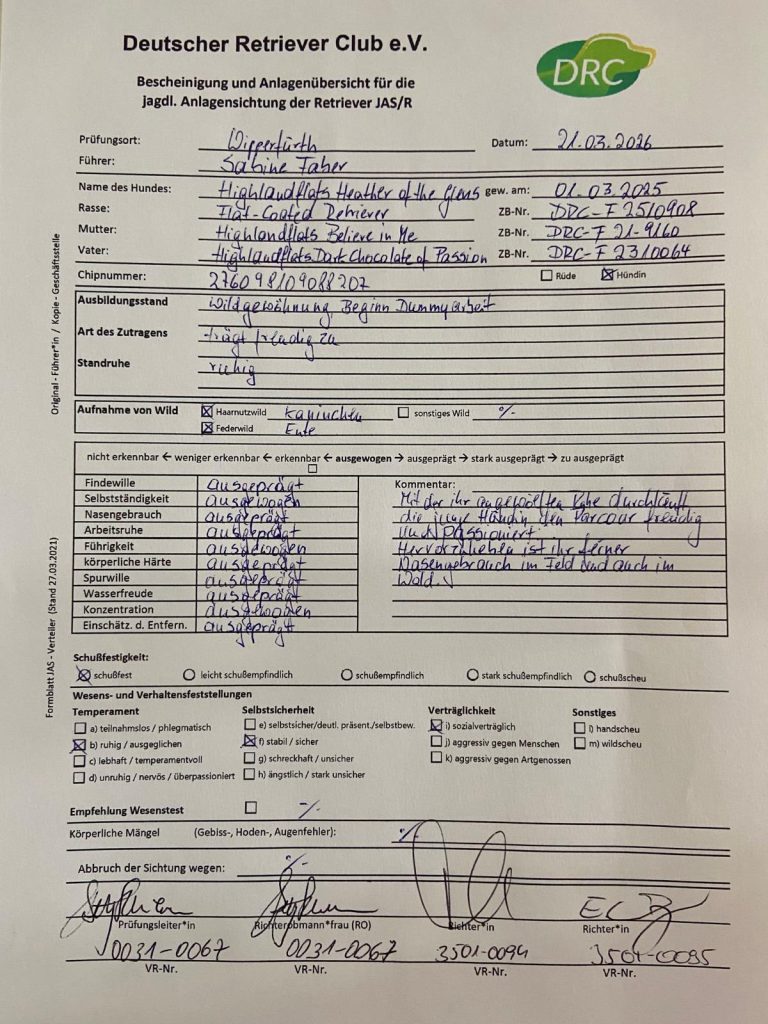 Deutscher Retriever Club e.V.
DRC
Bescheinigung und Anlagenübersicht für die
jagdl. Anlagensichtung der Retriever JAS/R
Prüfungsort: Wipperfürth Datum: 21.03.2026
Führer: Sabine Faber
Name des Hundes: Highlandflats Heather of the Glens gew. am: 01.03.2025
Rasse: Flat-Coated Retriever ZB-Nr. DRC-F 25/0908
Mutter: Highlandflats Believe in Me ZB-Nr. DRC-F 21-9160
Vater: Highlandflats Dark Chocolate of Passion ZB-Nr. DRC-F 23/0064
Chipnummer: 276098109088207 Rüde Hündin
Ausbildungsstand Wildgewöhnung, Beginn Dummyarbeit
Art des Zutragens trägt freudig zu
Standruhe ruhig
Aufnahme von Wild Haarnutzwild Kaninchen sonstiges Wild %-
Federwild Ente
nicht erkennbar ← weniger erkennbar ← erkennbar ← ausgewogen → ausgeprägt → stark ausgeprägt → zu ausgeprägt
Findewille ausgeprägt Kommentar:
Selbstständigkeit ausgewogen Mit der ihr angewölften Ruhe durchläuft
Nasengebrauch ausgeprägt die junge Hündin den Parcour freudig
Arbeitsruhe ausgeprägt und passioniert.
Führigkeit ausgewogen Hervorzuheben ist ihr feiner
körperliche Härte ausgeprägt Nasengebrauch im Feld und auch im
Spurwille ausgeprägt Wald.
Wasserfreude ausgeprägt
Konzentration ausgewogen
Einschätz. d. Entfern. ausgeprägt
Schußfestigkeit:
schußfest leicht schußempfindlich schußempfindlich stark schußempfindlich schußscheu
Wesens- und Verhaltensfeststellungen
Temperament Selbstsicherheit Verträglichkeit Sonstiges
a) teilnahmslos / phlegmatisch e) selbstsicher/deutl. präsent./selbstbew. i) sozialverträglich l) handscheu
b) ruhig / ausgeglichen f) stabil / sicher j) aggressiv gegen Menschen m) wildscheu
c) lebhaft / temperamentvoll g) schreckhaft / unsicher k) aggressiv gegen Artgenossen
d) unruhig / nervös / überpassioniert h) ängstlich / stark unsicher
Empfehlung Wesenstest -/-
Körperliche Mängel (Gebiss-, Hoden-, Augenfehler): %
Abbruch der Sichtung wegen: %-
Prüfungsleiter*in Richterobmann*frau (RO) Richter*in Richter*in
0031-0067 0031-0067 3501-0094 3501-0095
VR-Nr. VR-Nr. VR-Nr. VR-Nr.
Formblatt JAS - Verteiler (Stand 27.03.2021) Original - Führer*in / Kopie - Geschäftsstelle